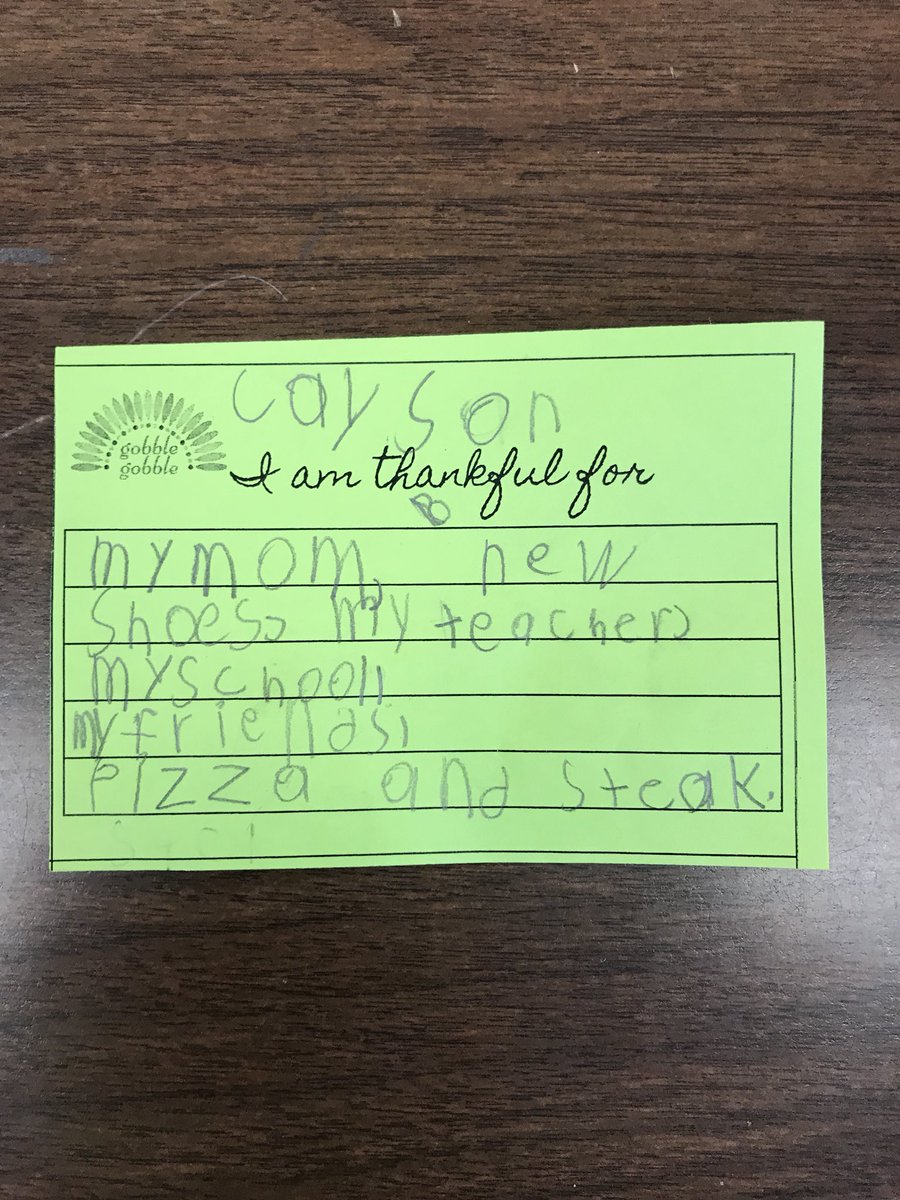 Cayson
gobble
gobble
I am thankful for
my mom, new
shoes, my teachers
my school,
my friends,
Pizza and steak.